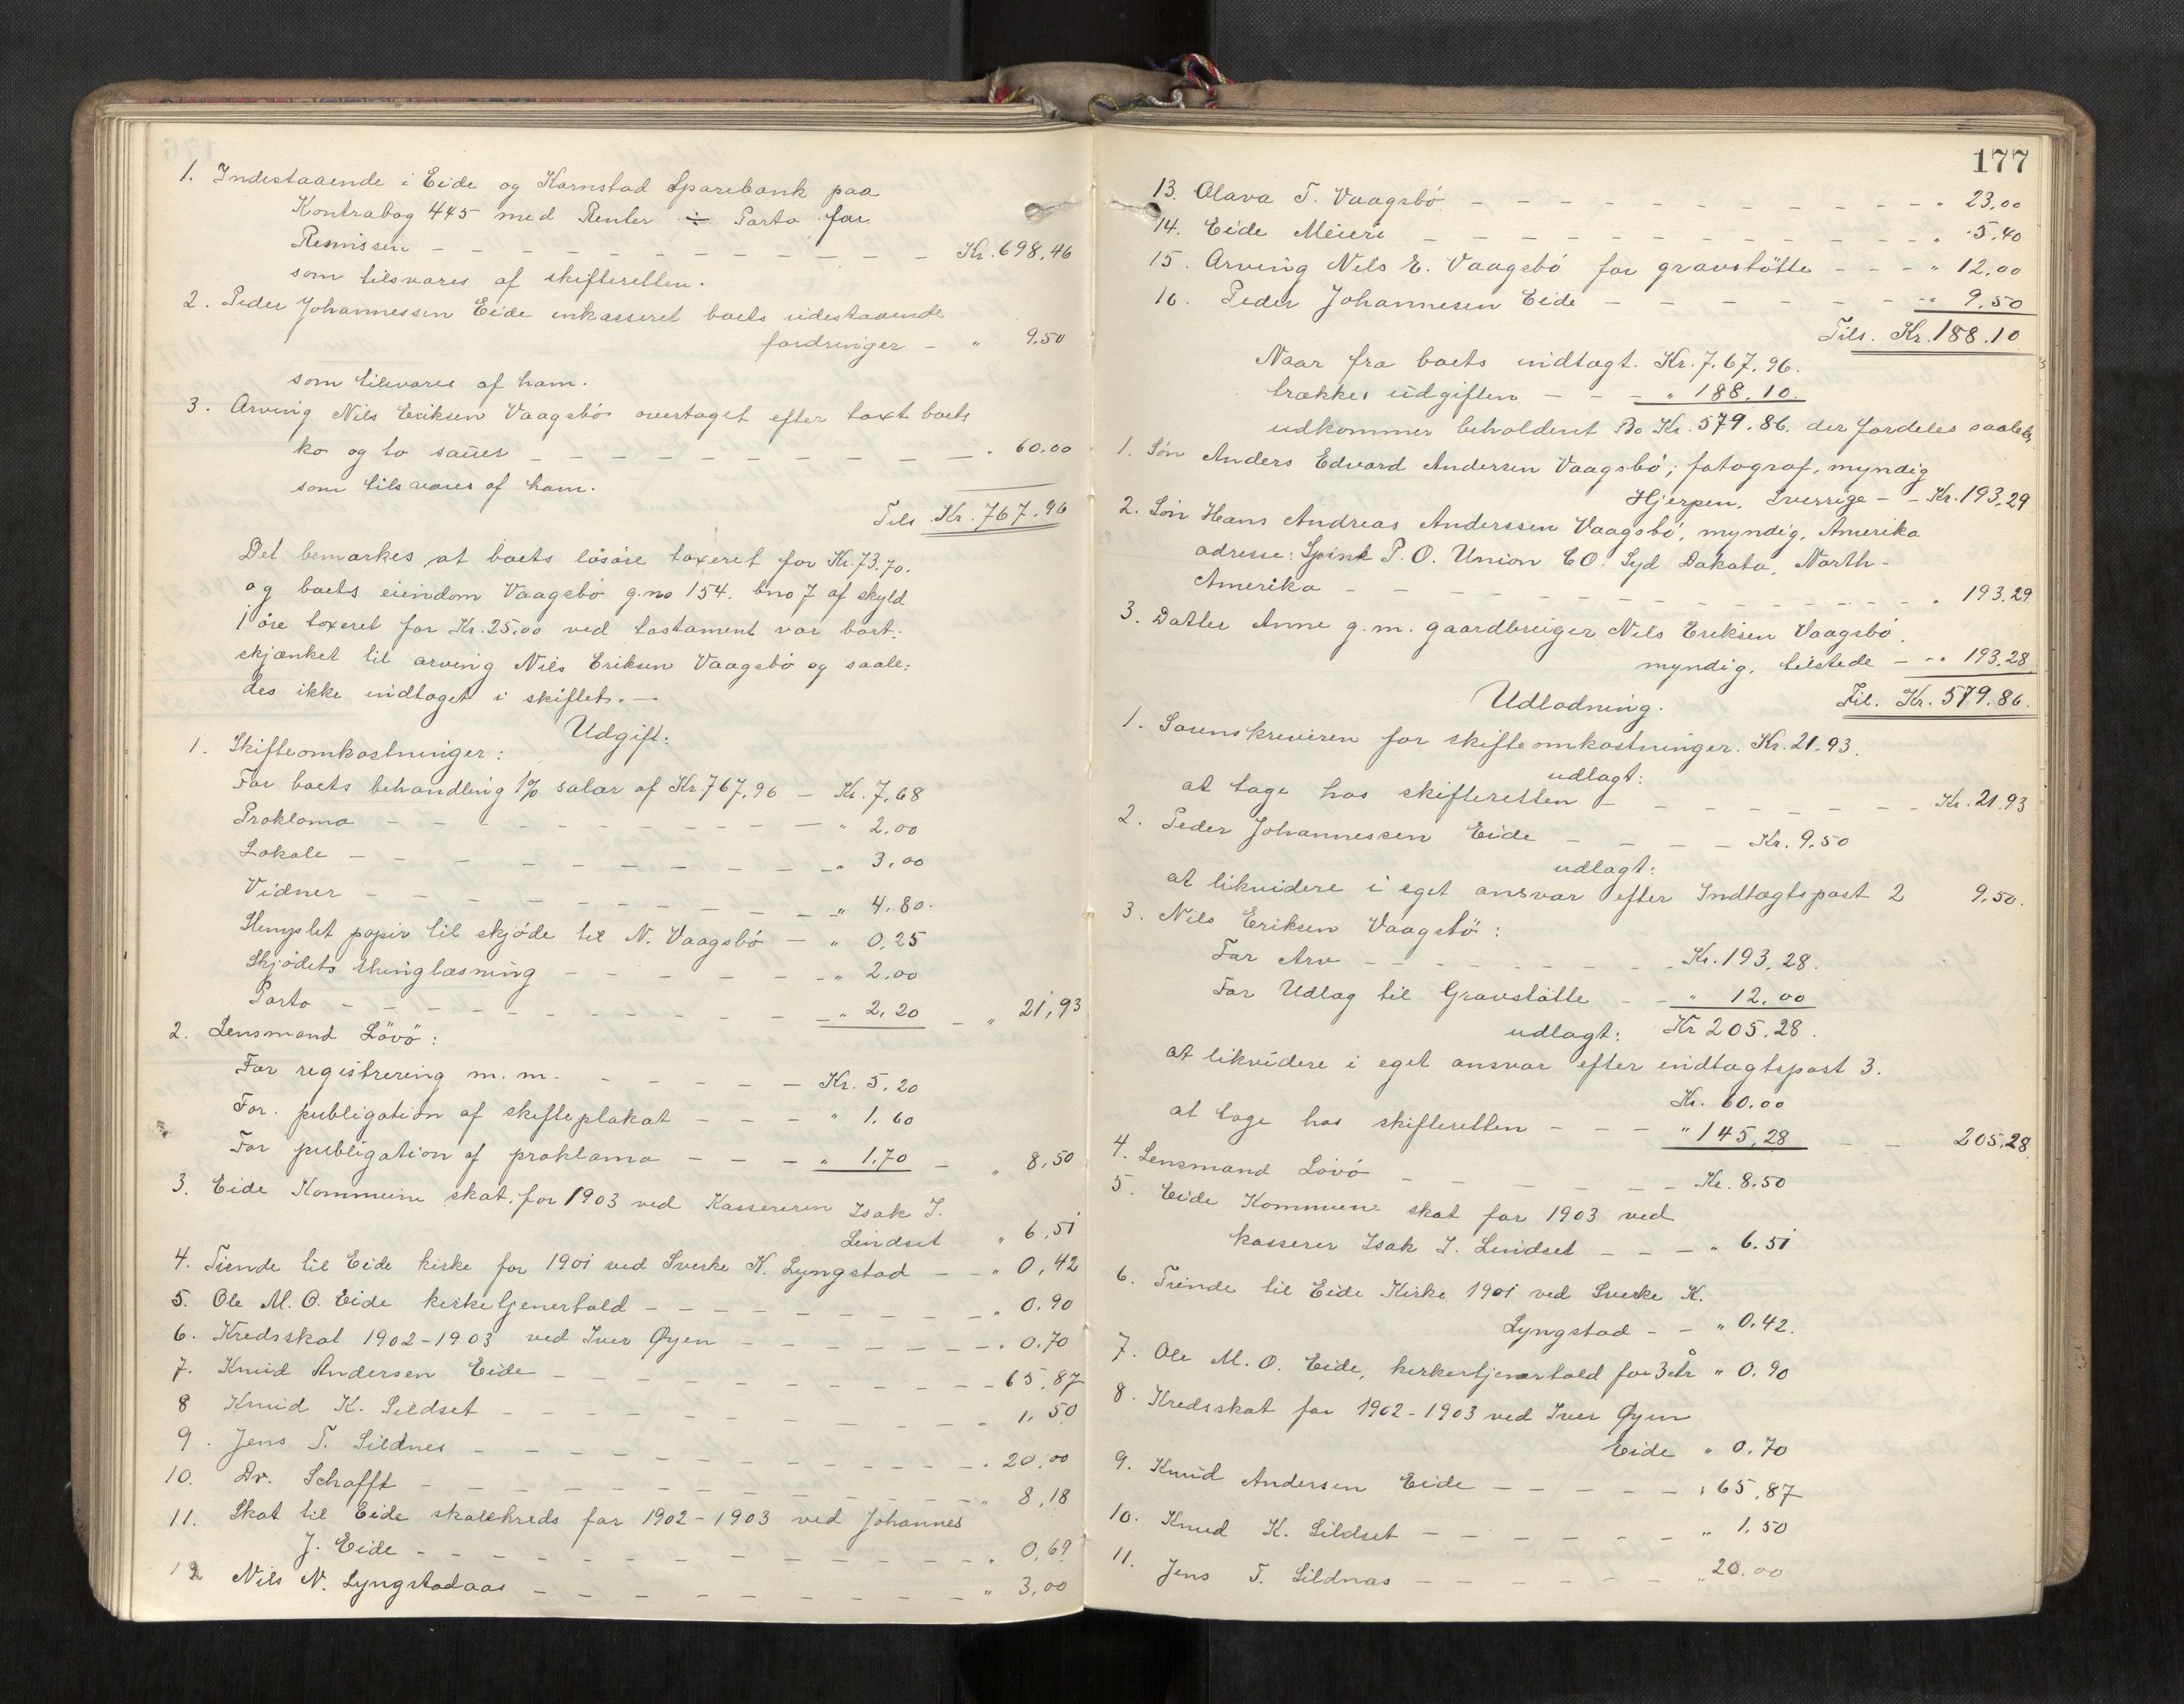 1. Indestaaende i Eide og Kornstad Sparebank paa
Kontrabog 445 med Renter ÷ Porto for
Remissen – – – Kr. 698,46
som tilsvares af skifteretten.
2. Peder Johannessen Eide inkasseret boets udestaaende
fordringer – " 9.50
som tilsvares af ham.
3. Arving Nils Eriksen Vaagsbö overtaget efter taxt boets
ko og to sauer – – – " 60.00
som tilsvares af ham.
Tils. Kr. 767.96
Det bemærkes at boets lösöre taxeret for Kr. 73.70.
og boets eiendom Vaagsbö g.no 154. bno 7 af skyld
1 öre taxeret for Kr. 25.00 ved testament var bort-
skjænket til arving Nils Eriksen Vaagsbö og saale-
des ikke indtaget i skiftet. –
Udgift:
1. Skifteomkostninger:
For boets behandling 1% salær af Kr. 767,96 – Kr. 7,68
Proklama – – – " 2.00
Lokale – – – " 3,00
Vidner – – – " 4.80.
Stemplet papir til skjöde til N. Vaagsbö – " 0,25
Skjödets thinglæsning – – – " 2.00
Porto – – – " 2,20 – " 21,93
2. Lensmand Lövö:
For registrering m.m. – – – Kr. 5,20
For publigation af skifteplakat – – – " 1.60
For publigation af proklama – – – " 1.70 – " 8,50
3. Eide Kommune skat for 1903 ved Kassereren Isak I.
Lindset " 6,51
4. Tiende til Eide kirke for 1901 ved Sverke K. Lyngstad – " 0,42
5. Ole M. O. Eide kirketjenertold – – – " 0.90
6. Kredsskat 1902-1903 ved Iver Øyen – – – " 0.70
7. Knud Andersen Eide – – – 65,87
8 Knud K. Sildset – – – " 1,50
9. Jens T. Sildnes – – – " 20.00
10. Dr. Schafft – – – " 8,18
11. Skat til Eide skolekreds for 1902-1903 ved Johannes
J. Eide – – – " 0,69
12 Nils N. Lyngstadaas – – – " 3,00
177
13. Olava T. Vaagsbö – – – " 23,00
14. Eide Meieri – – – " 5,40
15. Arving Nils E. Vaagsbö for gravstötte – – – " 12,00
16. Peder Johannesen Eide – – – " 9,50
Tils. Kr. 188.10
Naar fra boets indtægt. Kr. 7.67.96.
trækkes udgiften – – – " 188.10.
udkommer beholdent Bo Kr. 579.86. der fordeles saaled,
1. Sön Anders Edvard Andersen Vaagsbö, fotograf, myndig
Hjerpen, Sverrige – – Kr. 193,29
2. Sön Hans Andreas Anderssen Vaagsbö, myndig, Amerika
adresse: Spink P.O. Union CO. Syd Dakota, North-
Amerika – – – " 193,29
3. Datter Anne g.m. gaardbruger Nils Eriksen Vaagsbö.
myndig, tilstede – " 193,28
Til. Kr. 579.86.
Udlodning.
1. Sorenskriveren for skifteomkostninger. Kr. 21.93.
udlagt:
at tage hos skifteretten – – – Kr. 21.93
2. Peder Johannessen Eide – – – Kr. 9.50
udlagt:
at likvidere i eget ansvar efter Indtægtspost 2 9,50.
3. Nils Eriksen Vaagsbö:
For Arv – – – Kr. 193,28.
For Udlæg til Gravstötte – – " 12.00
udlagt: Kr 205,28.
at likvidere i eget ansvar efter indtægtspost 3.
Kr. 60.00
at tage hos skifteretten – – – " 145,28 – – 205.28.
4. Lensmand Lövö – – – Kr. 8.50
5. Eide Kommune skat for 1903 ved
kasserer Isak I. Lindset – – – " 6.51
6. Tiende til Eide Kirke 1901 ved Sverke K.
Lyngstad – – " 0.42.
7. Ole M. O. Eide, kirketjenertold for 3 år " 0.90
8. Kredsskat for 1902-1903 ved Iver Øyen
Eide " 0.70
9. Knud Andersen Eide – – – " 65,87
10. Knud K. Sildset – – – " 1.50
11. Jens T. Sildnæs – – – " 20.00